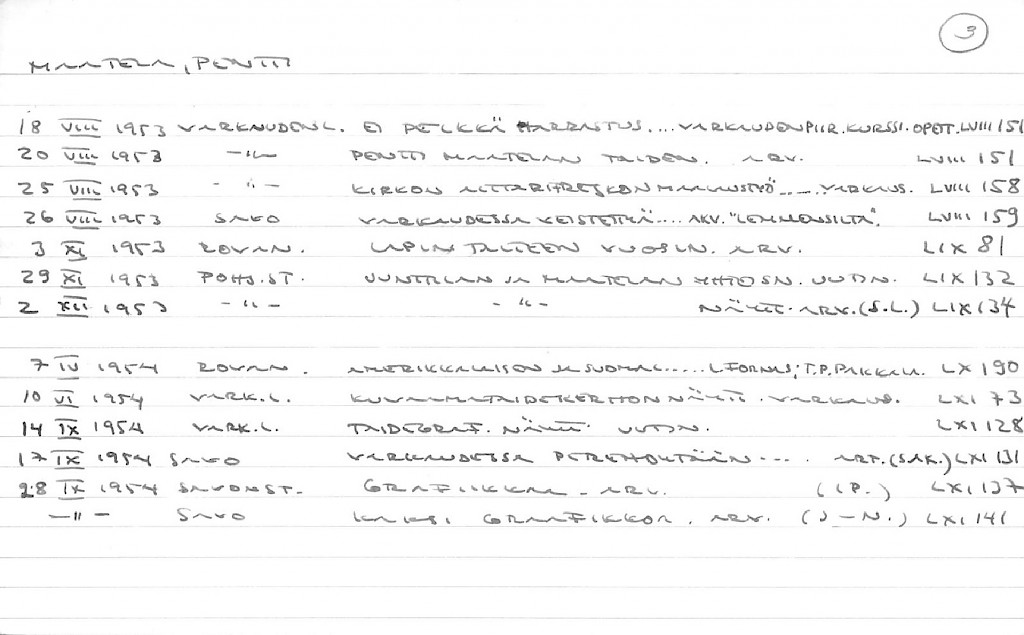 3
MAATELA, PENTTI
18 VIII 1953 VARKAUDEN L. EI PELKKÄ HARRASTUS.... VARKAUDEN PIIR. KURSSI. OPET. LVIII 151
20 VIII 1953 -"- PENTTI MAATELAN TAIDEN. ARV. LVIII 151
25 VIII 1953 - " - KIRKON ALTTARIFRESKON MAALAUSTYÖ ..... VARKAUS. LVIII 158
26 VIII 1953 SAVO VARKAUDESSA VEISTETTYÄ.... ARV. "LEMMENSILTA". LVIII 159
3 XI 1953 ROVAN. LAPIN TAITEEN VUOSIN. ARV. LIX 81
29 XI 1953 POHJ. ST. UUNTILAN JA MAATELAN YHTEISN. UUTIN. LIX 132
2 XII 1953 -"- -"- NÄYTT. ARV. (S.L.) LIX 134
7 IV 1954 ROVAN. AMERIKKALAISON JA SUOMAL..... L. FORNAS; T.P. PAKKALA. LX 190
10 VI 1954 VARK. L. KUVAAMATAIDEKERHON NÄYTT. VARKAUS. LXI 73
14 IX 1954 VARK. L. TAIDEGRAF. NÄYTT. UUTIN. LXI 128
17 IX 1954 SAVO VARKAUDESSA PEREHDYTÄÄN .... ART. (SAK.) LXI 131
28 IX 1954 SAVON ST. GRAFIIKKAA. ARV. (IP.) LXI 137
-"- SAVO KAKSI GRAAFIKKOA. ARV. (J-N.) LXI 141